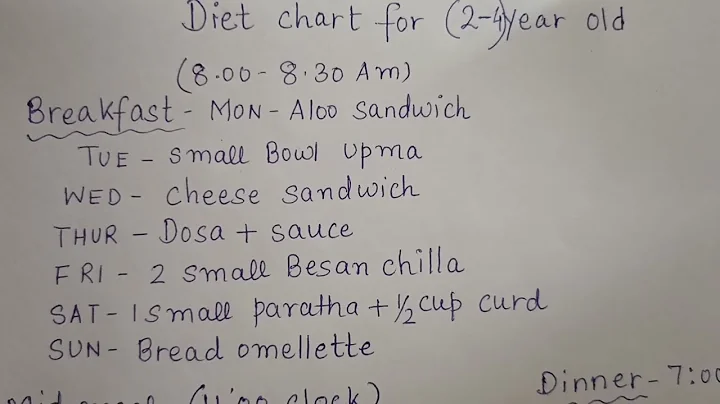 Diet chart for (2-4)year old
(8.00 - 8.30 Am)
Breakfast - MON - Aloo sandwich
TUE - small Bowl upma
WED - cheese sandwich
THUR - Dosa + sauce
FRI - 2 small Besan chilla
SAT - 1 small paratha + 1/2 cup curd
SUN - Bread omellette
Dinner - 7:00
(11:00 clock)